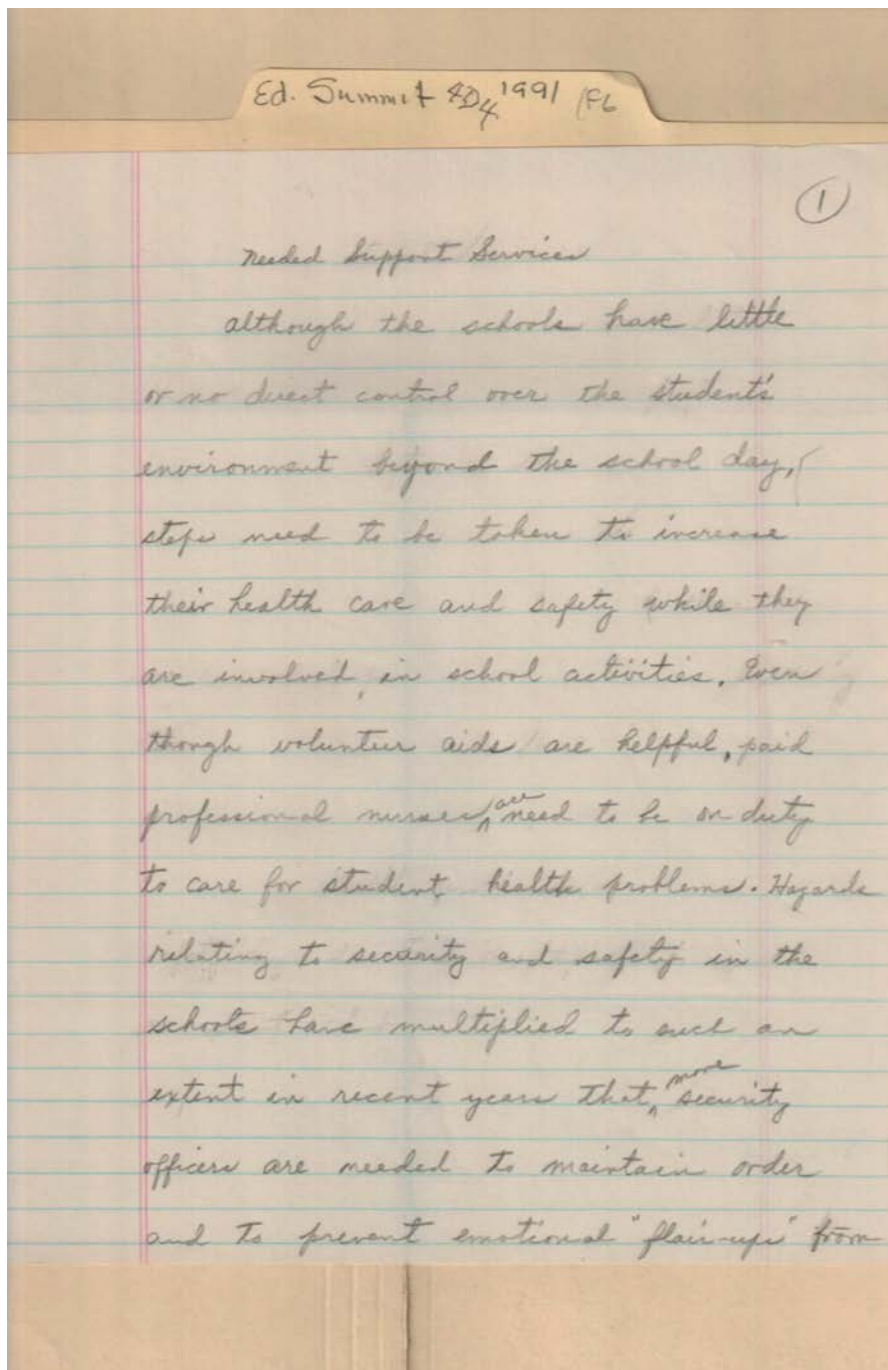 Ed. Summit 4D4 1991 (F6
1
Needed Support Services
Although the schools have little
or no direct control over the student's
environment beyond the school day,
steps need to be taken to increase
their health care and safety while they
are involved in school activities. Even
though volunteer aids are helpful, paid
professional nurses are need to be on duty
to care for student health problems. Hazards
relating to security and safety in the
schools have multiplied to such an
extent in recent years that more security
officers are needed to maintain order
and to prevent emotional "flair-ups" from